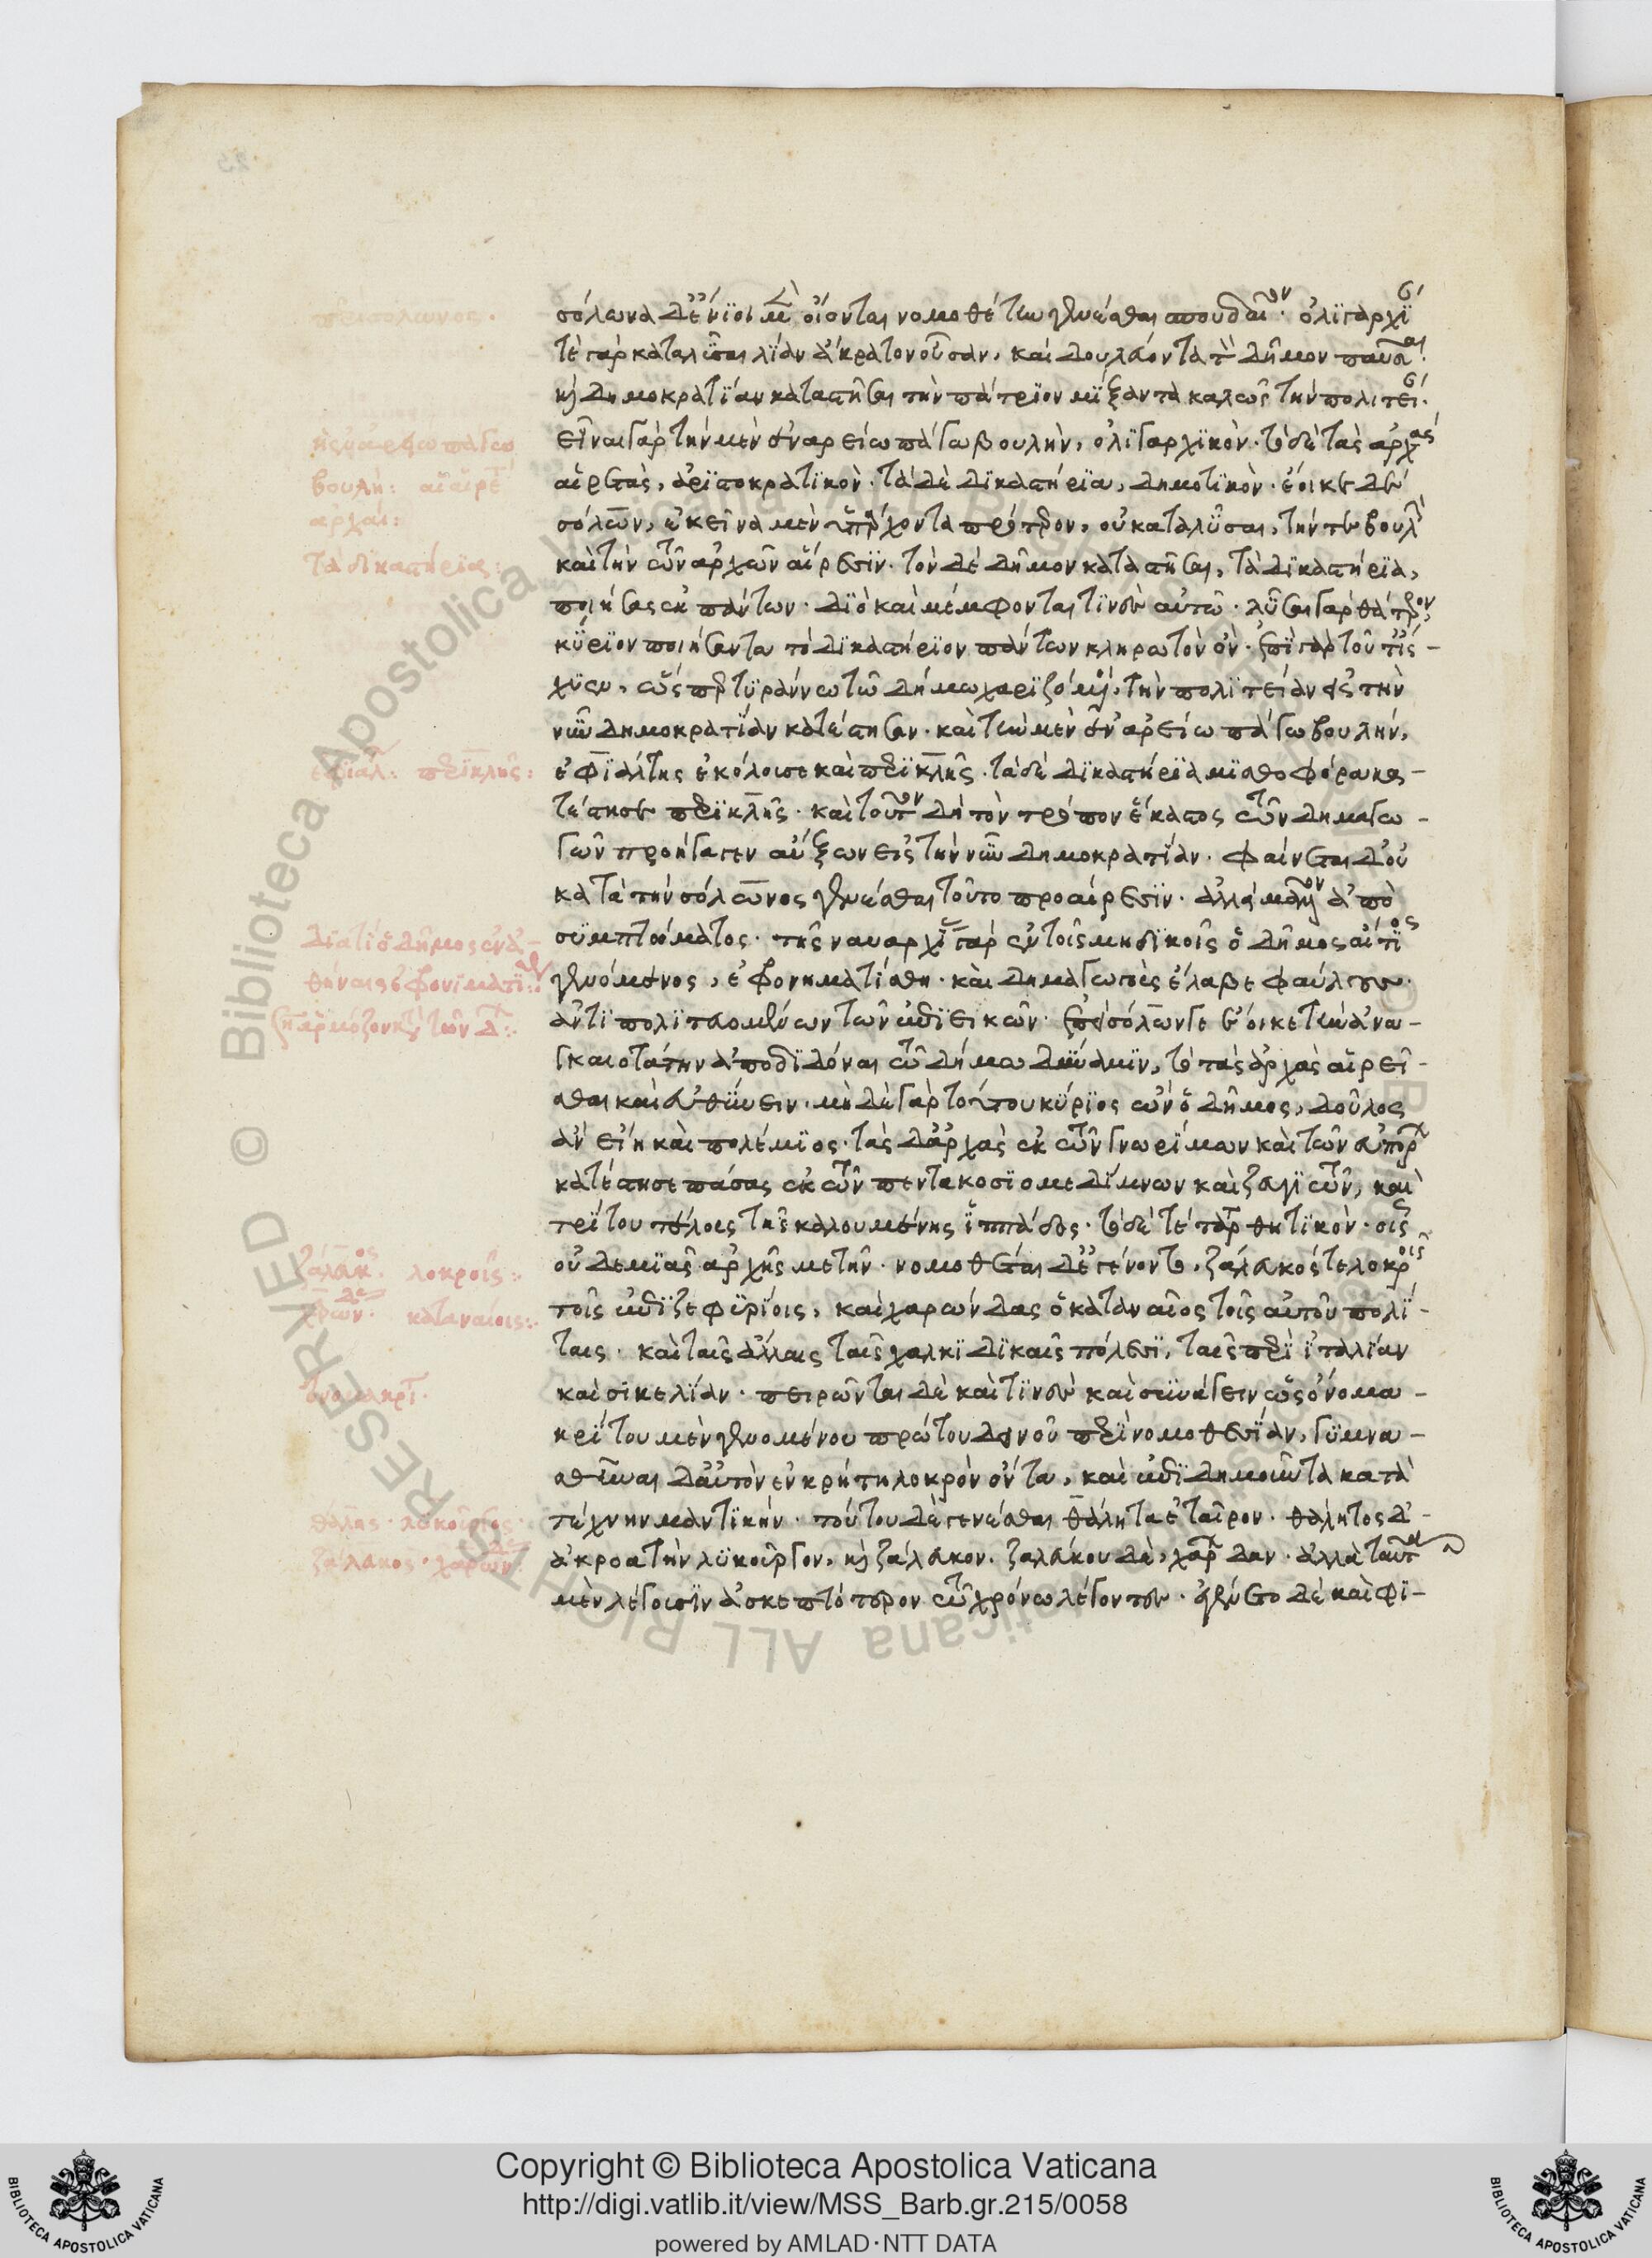 σόλωνα δ' ἔνϊοι μὲν οἴονται νομοθέτην γενέσθαι σπουδαῖον· ὀλϊγαρχίαν
τὲ γὰρ καταλῦσαι λίαν ἄκρατον οὖσαν, καὶ δουλεύοντα τὸν δῆμον παῦσαι·
κὴ δημοκρατίαν καταστῆσαι τὴν πάτριον μίξαντα καλῶς τὴν πολιτείαν·
εἶναι γὰρ τὴν μὲν ἐν ἀρείω πάγω βουλὴν, ὀλϊγαρχϊκὸν· τὸ δὲ τὰς ἀρχὰς
αἱρετὰς, ἀριστοκρατϊκὸν· τὰ δὲ δικαστήρια, δημοτϊκὸν· ἔοικε δὲ
σόλων, ἐκεῖνα μὲν ὑπάρχοντα πρότερον, οὐ καταλῦσαι, τήν τε βουλὴν
καὶ τὴν τῶν ἀρχῶν αἵρεσιν· τὸν δὲ δῆμον καταστῆσαι, τὰ δικαστήρια,
ποιήσας ἐκ πάντων· διὸ καὶ μέμφονταί τϊνες αὐτῶ· λῦσαι γὰρ θάτερον,
κύριον ποιήσαντα τὸ δικαστήριον πάντων κληρωτὸν ὄν· ἐπεὶ γὰρ τοῦτ' ἴς-
χϋεν, ὥσπερ τϋράννω τῶ δήμω χαριζόμενοι, τὴν πολϊτείαν εἰς τὴν
νῦν δημοκρατίαν κατέστησαν· καὶ τὴν μὲν ἐν ἀρείω πάγω βουλὴν,
ἐφϊάλτης ἐκόλουσε καὶ περϊκλῆς· τὰ δὲ δικαστήρια μϊσθοφόρα κα-
τέστησε περϊκλῆς· καὶ τοῦτον δὴ τὸν τρόπον ἕκαστος τῶν δημαγω-
γῶν προήγαγεν αὔξων εἰς τὴν νῦν δημοκρατίαν· φαίνεται δ' οὐ
κατὰ τὴν σόλωνος γενέσθαι τοῦτο προαίρεσιν· ἀλλὰ μᾶλλον ἀπὸ
συμπτώματος· τῆς ναυαρχίας γὰρ ἐν τοῖς μηδϊκοῖς ὁ δῆμος αἴτϊος
γενόμενος, ἐφρονηματίσθη· καὶ δημαγωγοὺς ἔλαβε φαύλους
ἀντϊπολϊτευομένων τῶν ἐπϊεικῶν· ἐπεὶ σόλων γε ἔοικε τὴν ἀνα-
γκαιοτάτην ἀποδϊδόναι τῶ δήμω δύναμϊν, τὸ τὰς ἀρχὰς αἱρεῖ-
σθαι καὶ εὐθύνειν· μὴ δὲ γὰρ τούτου κύρϊος ὢν ὁ δῆμος, δοῦλος
ἂν εἴη καὶ πολέμϊος· τὰς δ' ἀρχὰς ἐκ τῶν γνωρίμων καὶ τῶν εὐπόρων
κατέστησε πάσας ἐκ τῶν πεντακοσϊομεδίμνων καὶ ζευγιτῶν, καὶ
τρίτου τέλους τῆς καλουμένης ἱππάδος· τὸ δὲ τέταρτον θητϊκὸν· οἷς
οὐδεμϊᾶς ἀρχῆς μετῆν· νομοθέται δ' ἐγένοντο, ζάλευκός τε λοκροῖς
τοῖς ἐπϊζεφϋρίοις, καὶ χαρώνδας ὁ καταναῖος τοῖς αὐτοῦ πολί-
ταις· καὶ ταῖς ἄλλαις ταῖς χαλκϊδϊκαῖς πόλεσϊ, ταῖς περὶ ἰταλίαν
καὶ σϊκελίαν· πειρῶνται δὲ καὶ τϊνὲς καὶ συνάγειν ὡς ὀνομα-
κρίτου μὲν γενομένου πρώτου δεινοῦ περὶ νομοθεσίαν, γϋμνα-
σθῆναι δ' αὐτὸν ἐν κρήτη λοκρὸν ὄντα, καὶ ἐπϊδημοῦντα κατὰ
τέχνην μαντϊκήν· τούτου δὲ γενέσθαι θάλητα ἑταῖρον· θάλητος δ'
ἀκροατὴν λυκοῦργον, κὴ ζάλευκον· ζαλεύκου δὲ, χαρώνδαν· ἀλλὰ ταῦτα
μὲν λέγουσϊν ἀσκεπτότερον τῶ χρόνω λέγοντες· ἐγένετο δὲ καὶ φϊ-
περὶ σόλωνος·
ἡ ἐν ἀρείω πάγω
βουλή: αἱ αἱρετ
ἀρχαί:
τὰ δικαστήρια:
ἐφιάλ: περϊκλῆς:
διατί ὁ δῆμος ἐν ἀ-
θήναις ἐφρονιματί
ζάλευκος λοκροῖς:
χαρώνδας καταναίοις:
ὀνομακριτ·
θάλης· λυκοῦργος·
ζάλευκος· χαρώνδας
Copyright © Biblioteca Apostolica Vaticana
http://digi.vatlib.it/view/MSS_Barb.gr.215/0058
powered by AMLAD·NTT DATA
BIBLIOTECA APOSTOLICA VATICANA
BIBLIOTECA APOSTOLICA VATICANA
© Biblioteca Apostolica Vaticana ALL RIGHTS RESERVED